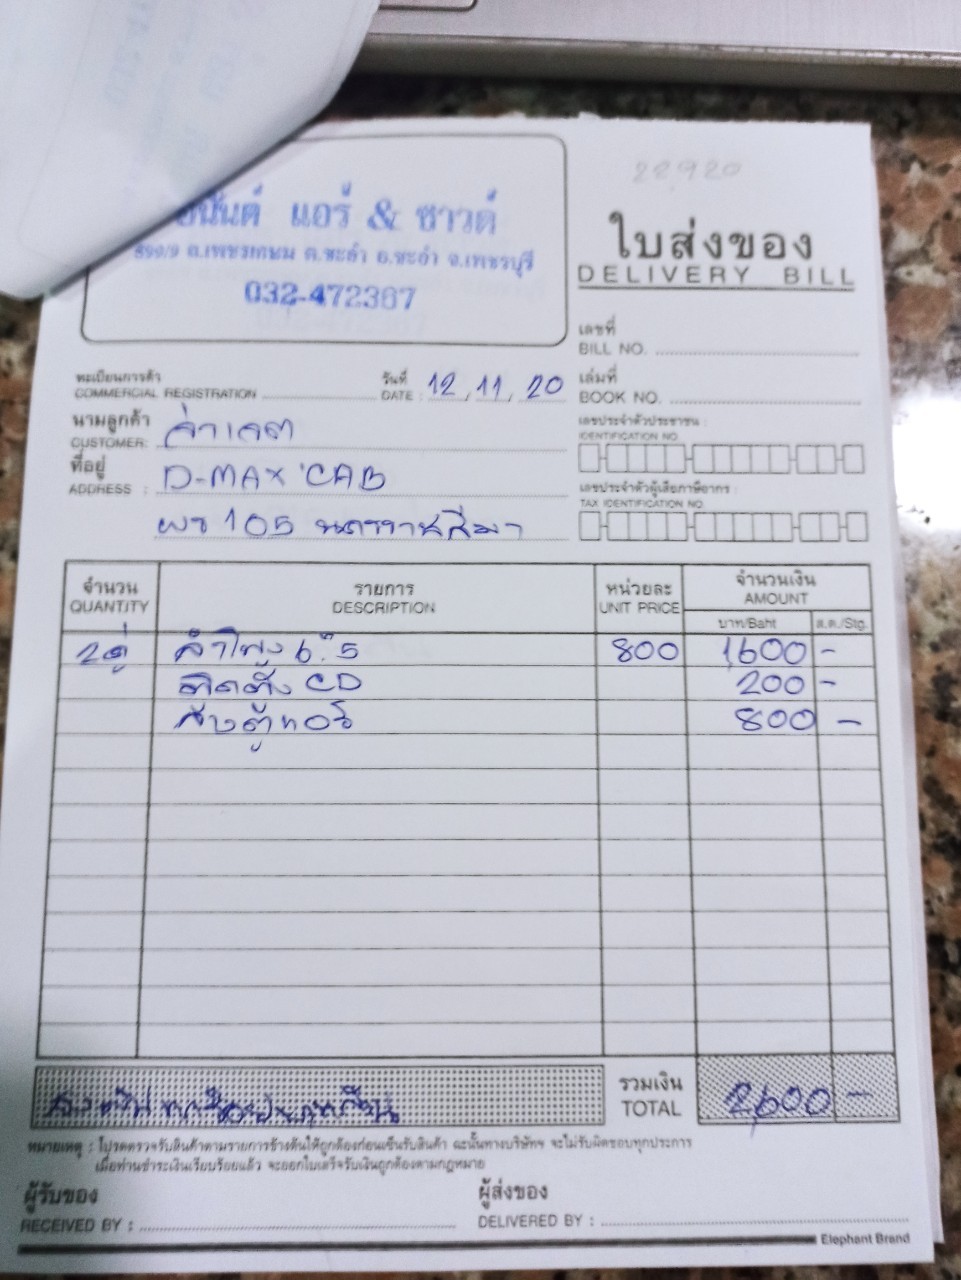 22920
แอร์ & ซาวด์
ถ.เพชรเกษม ต.ชะอำ อ.ชะอำ จ.เพชรบุรี
032-472367
ใบส่งของ
DELIVERY BILL
เลขที่
BILL NO.
ทะเบียนการค้า
COMMERCIAL REGISTRATION
วันที่
DATE : 12, 11, 20
เล่มที่
BOOK NO.
นามลูกค้า
CUSTOMER:
เลขประจำตัวประชาชน :
IDENTIFICATION NO.
ที่อยู่
ADDRESS : D-MAX CAB
105 นครราชสีมา
เลขประจำตัวผู้เสียภาษีอากร :
TAX IDENTIFICATION NO.
จำนวน รายการ หน่วยละ จำนวนเงิน
QUANTITY DESCRIPTION UNIT PRICE AMOUNT
บาท/Baht ส.ต./Stg.
2คู่ ลำโพง 6.5 800 1600 -
ติดตั้ง CD 200 -
ล้างตู้แอร์ 800 -
รวมเงิน
TOTAL 2600 -
หมายเหตุ : โปรดตรวจรับสินค้าตามรายการข้างต้นให้ถูกต้องก่อนเซ็นรับสินค้า ฉะนั้นทางบริษัทฯ จะไม่รับผิดชอบทุกประการ
เมื่อท่านชำระเงินเรียบร้อยแล้ว จะออกใบเสร็จรับเงินถูกต้องตามกฎหมาย
ผู้รับของ
RECEIVED BY :
ผู้ส่งของ
DELIVERED BY :
Elephant Brand